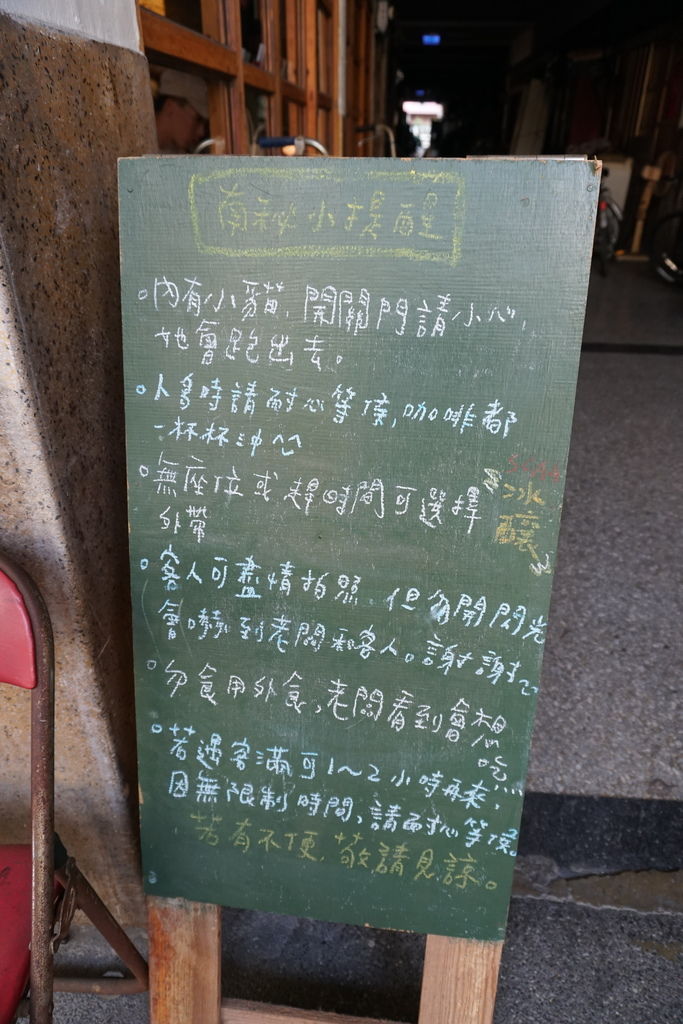 南秘小提醒
。內有小貓,開關門請小心,
牠會跑出去。
。人多時請耐心等候,咖啡都
一杯杯沖
。無座位或趕時間可選擇
外帶
冰
。客人可盡情拍照.但勿開閃光
會嚇到老闆和客人。謝謝
。勿食用外食,老闆看到會想
吃
。若遇客滿可1~2小時再來,
因無限制時間,請耐心等候
若有不便,敬請見諒。